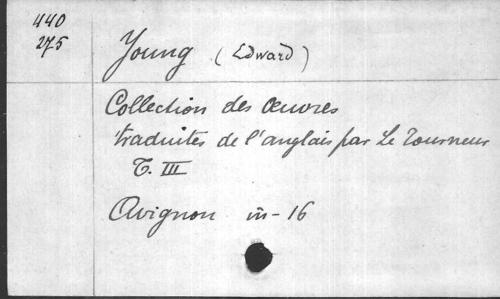 440
275
Young (Edward)
Collection des œuvres
traduites de l'anglais par Le Tourneur
T. III
Avignon in-16